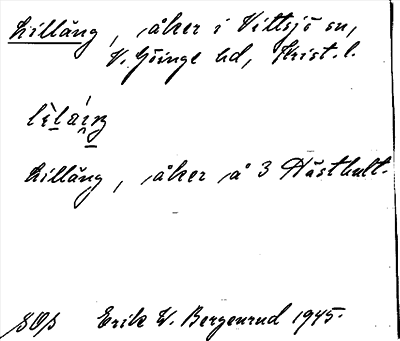 Lillång, åker i Vittsjö sn,
V. Göinge hd, Krist. l.
Lillång, åker å 3 Hästhult.
SOp Erik W. Bergenrud 1945.